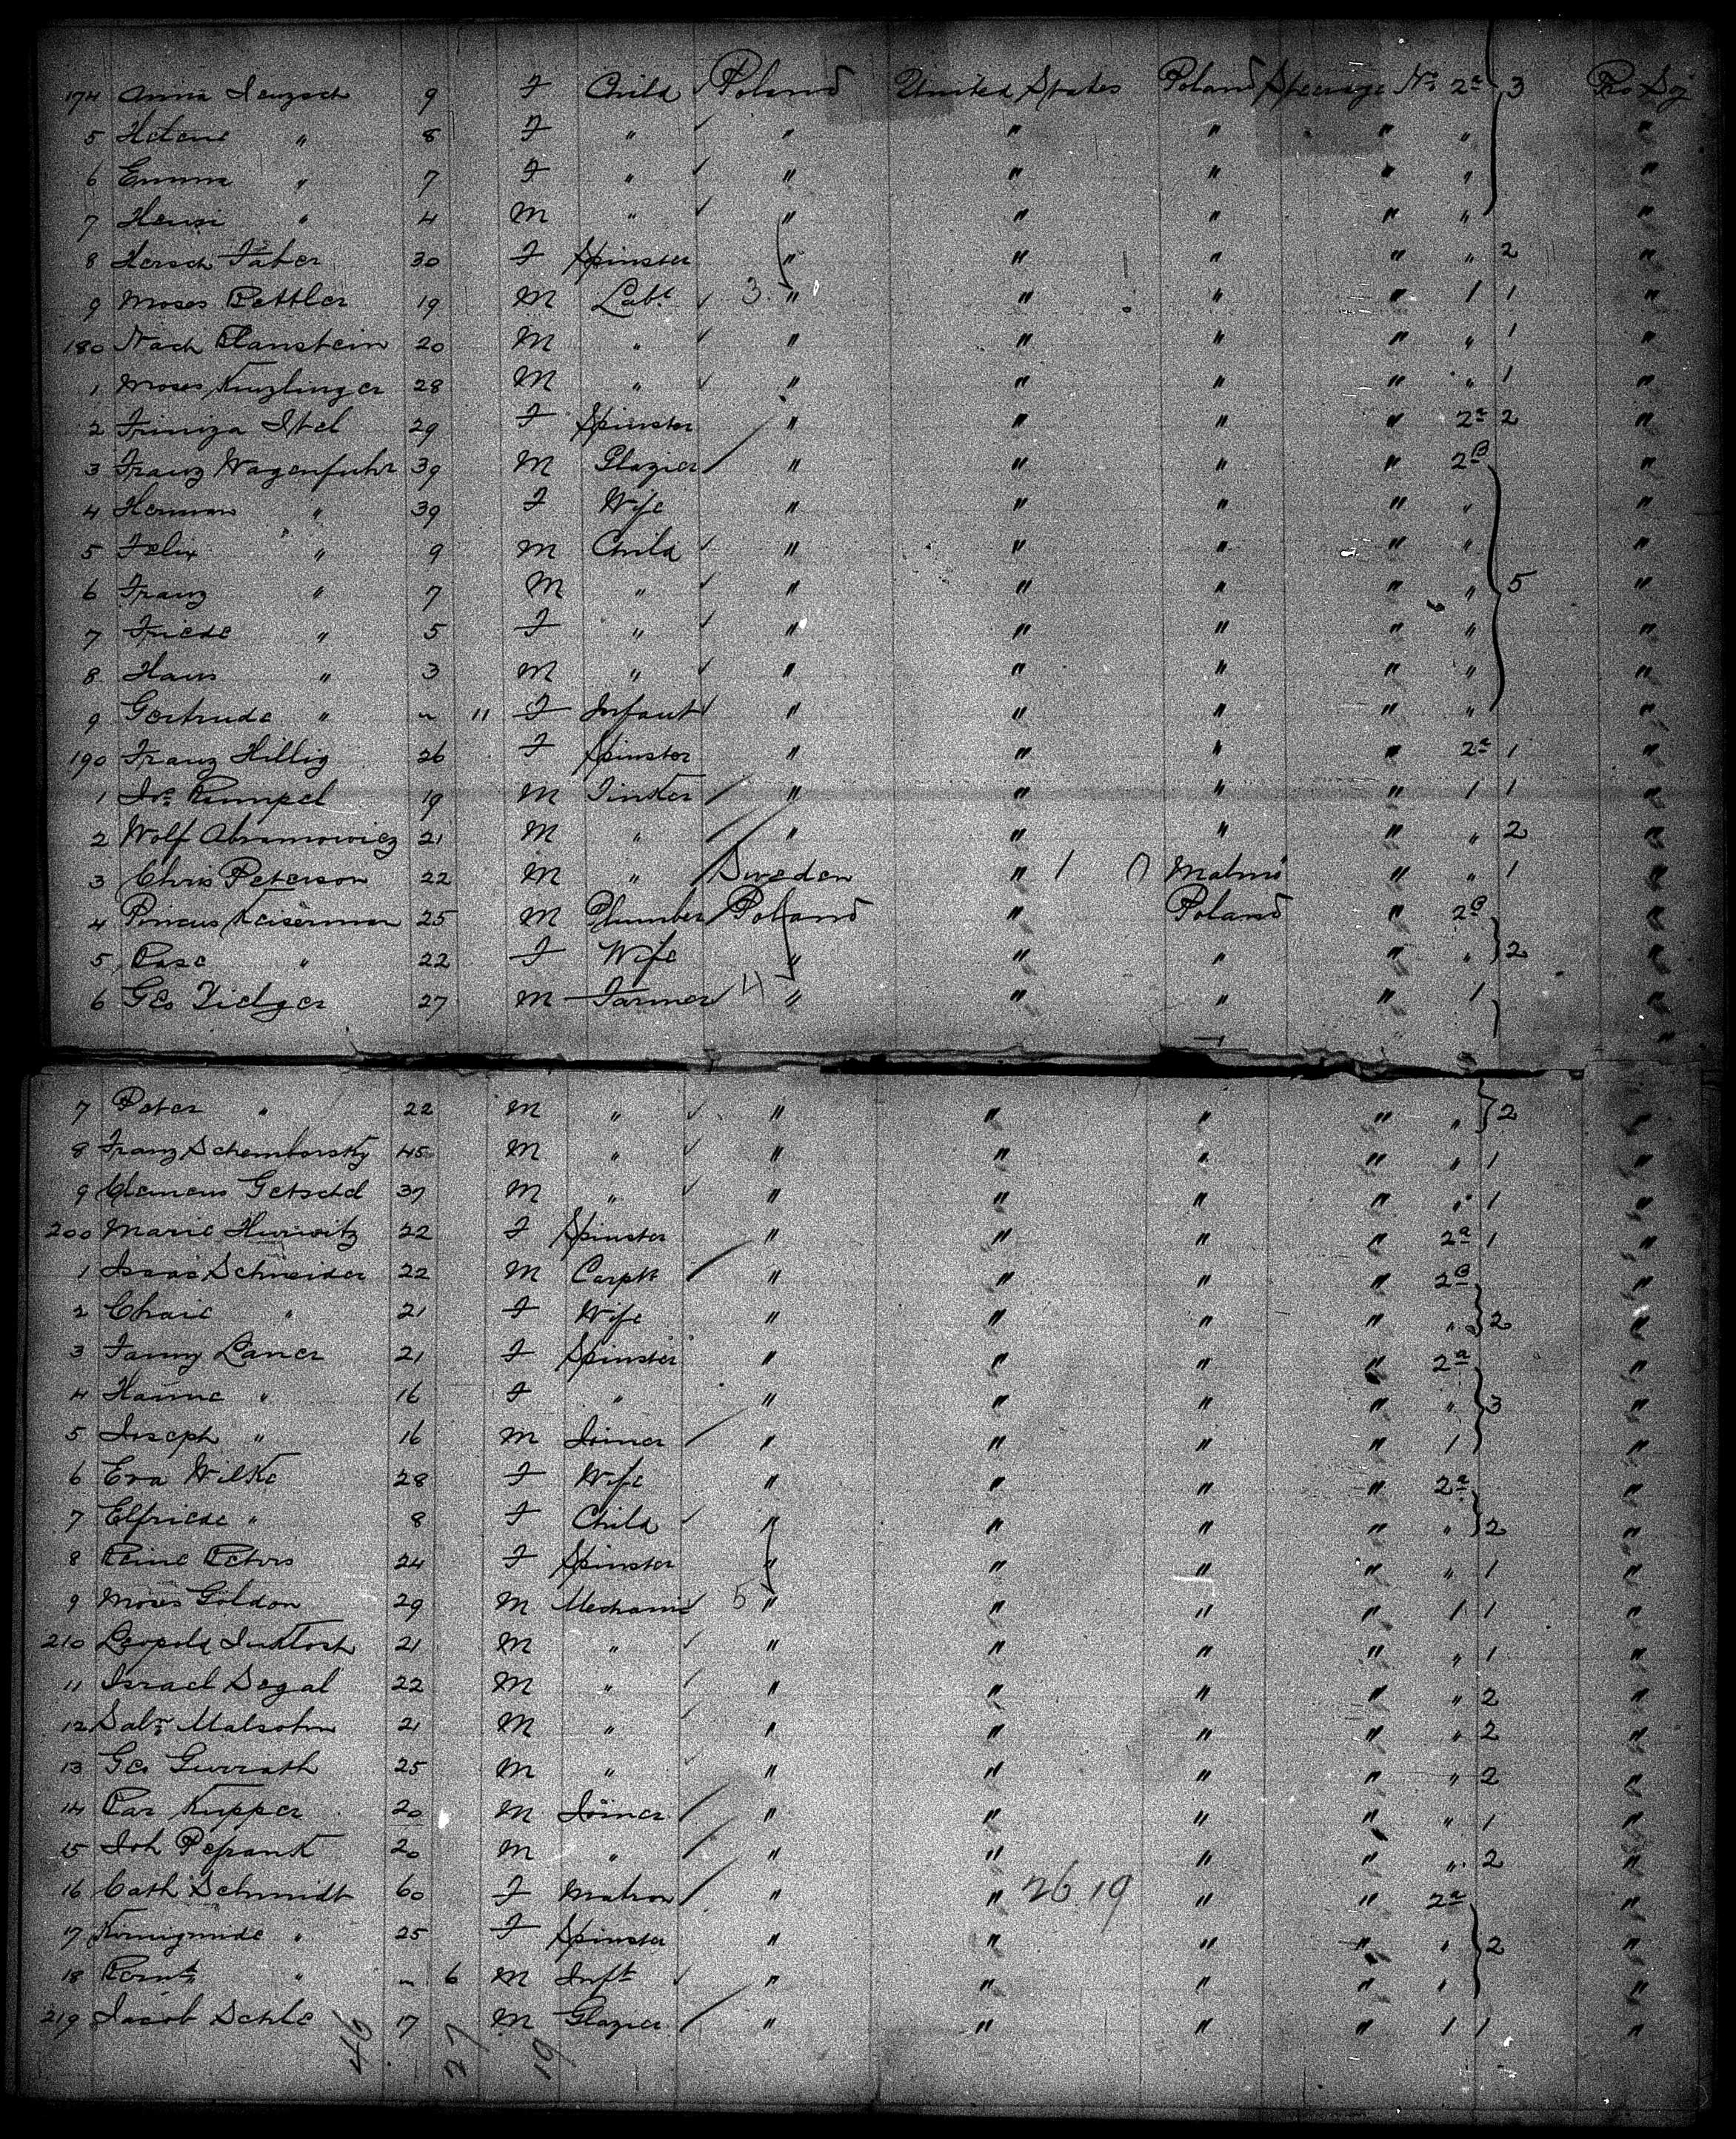 174 Anna Jenzsch 9 F Child Poland United States Poland Steerage No 2a 3 Pro Soj
5 Helene " 8 F " " " " " " "
6 Emma " 7 F " " " " " " "
7 Henri " 4 M " " " " " " "
8 Hersch Faber 30 F Spinster " " " " " 2 "
9 Moses Rettler 19 M Labr 3 " " " " 1 1 "
180 Nach Blanstein 20 M " " " " " " 1 "
1 Moses Kinzlinger 28 M " " " " " " 1 "
2 29 F Spinster " " " " 2a 2 "
3 Franz Wagenfuhr 39 M Glazier " " " " 2B "
4 Herman " 39 F Wife " " " " " "
5 Felix " 9 M Child " " " " " "
6 Franz " 7 M " " " " " " 5 "
7 Friede " 5 F " " " " " " "
8 Hans " 3 M " " " " " " "
9 Gertrude " " 11 F Infant " " " " " "
190 Franz Hillig 26 F Spinster " " " " 2a 1 "
1 Rumpel 19 M Tinker " " " " 1 1 "
2 Wolf Abramowicz 21 M " " " " " " 2 "
3 Chris Peterson 22 M " Sweden " 1 Malmö " " 1 "
4 Pincus Keiserman 25 M Plumber Poland " Poland " 2B "
5 Rose " 22 F Wife " " " " " 2 "
6 Geo Vielger 27 M Farmer 4 " " " " 1 "
7 Peter " 22 M " " " " " " 2 "
8 Franz Schemborsky 45 M " " " " " " 1 "
9 Clemens Getschel 37 M " " " " " " 1 "
200 Marie Hurwitz 22 F Spinster " " " " 2a 1 "
1 Isaac Schneider 22 M Carptr " " " " 2B "
2 Chaie " 21 F Wife " " " " " 2 "
3 Fanny Laner 21 F Spinster " " " " 2a "
4 Hanne " 16 F " " " " " " 3 "
5 Joseph " 16 M Joiner " " " " 1 "
6 Eva Wilke 28 F Wife " " " " 2a "
7 Elfriede " 8 F Child " " " " " 2 "
8 Reine Peters 24 F Spinster " " " " " 1 "
9 Moses Goldon 29 M Mechanic 5 " " " " 1 1 "
210 Leopold 21 M " " " " " " 1 "
11 Israel Segal 22 M " " " " " " 2 "
12 Salr Malsohn 21 M " " " " " " 2 "
13 Geo Gurrath 25 M " " " " " " 2 "
14 Kupper 20 M Joiner " " " " " 1 "
15 Joh Pefrank 20 M " " " " " " 2 "
16 Cath Schmidt 60 F Matron " " 26 19 " " 2a "
17 " 25 F Spinster " " " " " 2 "
18 " " 6 M Inft " " " " " "
219 Jacob Schle 17 M Glazier " " " " 1 1 "
46 27 19